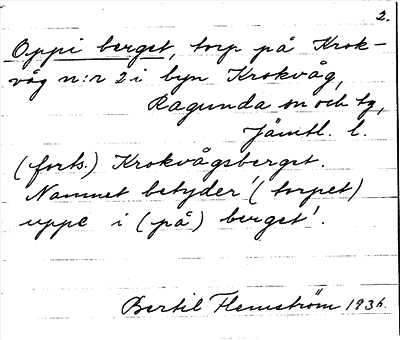 2.
Oppi berget, torp på Krok-
våg n:r 2 i byn Krokvåg,
Ragunda sn och tg,
Jämtl. l.
(forts.) Krokvågsberget.
Namnet betyder '(torpet)
uppe i (på) berget'.
Bertil Flemström 1936.